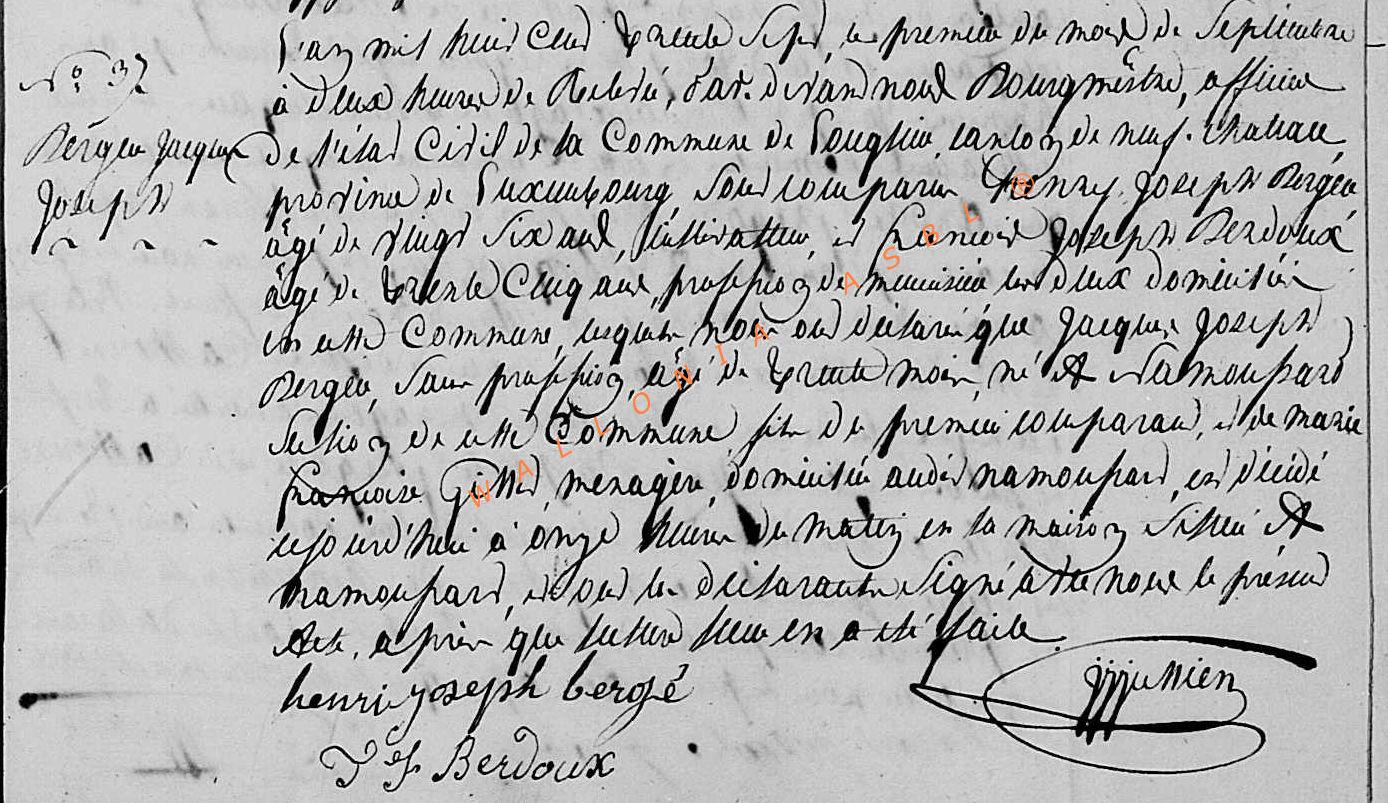 L'an mil huit cent trente sept, le premier du mois de Septembre
N° 37
à deux heures de Relevée, par devand nous Bourgmêstre, officier
Berger Jacques
de l'état Civil de la Commune de Louglier canton de neuf-chateau,
Joseph
province de Luxembourg, sont comparu henry Joseph Berger
âgé de vingt six ans, instituteur et francois Joseph Berdoux
âgé de trente Cinq ans, profession de menuisier les deux domiciliés
en cette Commune, lesquels nous ont déclaré que Jacques Joseph
Berger, sans profession, âgé de trente mois né A Namoussard
section de cette Commune fils du premier comparant, et de marie
francoise Gillet menagère, domiciliée audit namoussard, est décédé
cejourd'hui à onze heures du matin en la maison située A
namoussard, et ont les déclarants signé avec nous le présent
Acte, après que lecture leur en a été faite
henri joseph bergé
F Jh Berdoux
WALLONIA ASBL ®